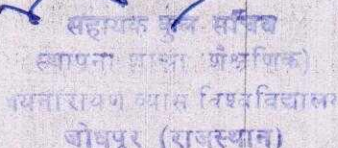 सहायक कुल सचिव
स्थापना शाखा (शैक्षणिक)
जयनारायण व्यास विश्वविद्यालय
जोधपुर (राजस्थान)